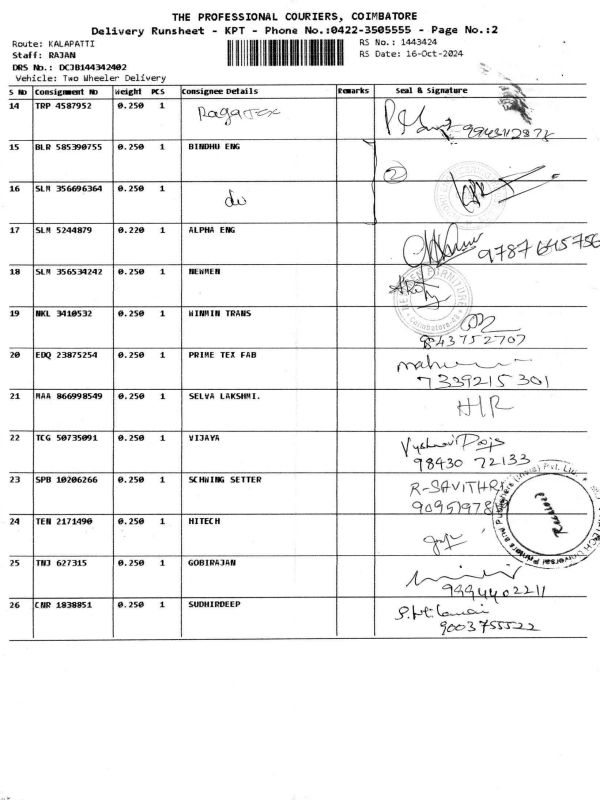 THE PROFESSIONAL COURIERS, COIMBATORE
Delivery Runsheet - KPT - Phone No.:0422-3505555 - Page No.:2
Route: KALAPATTI
RS No.: 1443424
Staff: RAJAN
RS Date: 16-Oct-2024
DRS No.: DCJB144342402
Vehicle: Two Wheeler Delivery
S No Consignment No Weight PCS Consignee Details Remarks Seal & Signature
14 TRP 4587952 0.250 1 Ragatex
15 BLR 585390755 0.250 1 BINDHU ENG
16 SLM 356696364 0.250 1 do 2
17 SLM 5244879 0.220 1 ALPHA ENG
9787645756
18 SLM 356534242 0.250 1 NEWMEN
19 NKL 3410532 0.250 1 WINMIN TRANS
9843752707
20 EDQ 23875254 0.250 1 PRIME TEX FAB
7339215301
21 MAA 866998549 0.250 1 SELVA LAKSHMI.
H/R
22 TCG 50735091 0.250 1 VIJAYA
98430 72133
23 SPB 10206266 0.250 1 SCHWING SETTER R-SAVITHRI
24 TEN 2171490 0.250 1 HITECH
25 TNJ 627315 0.250 1 GOBIRAJAN
9994402211
26 CNR 1838851 0.250 1 SUDHIRDEEP
9003755522